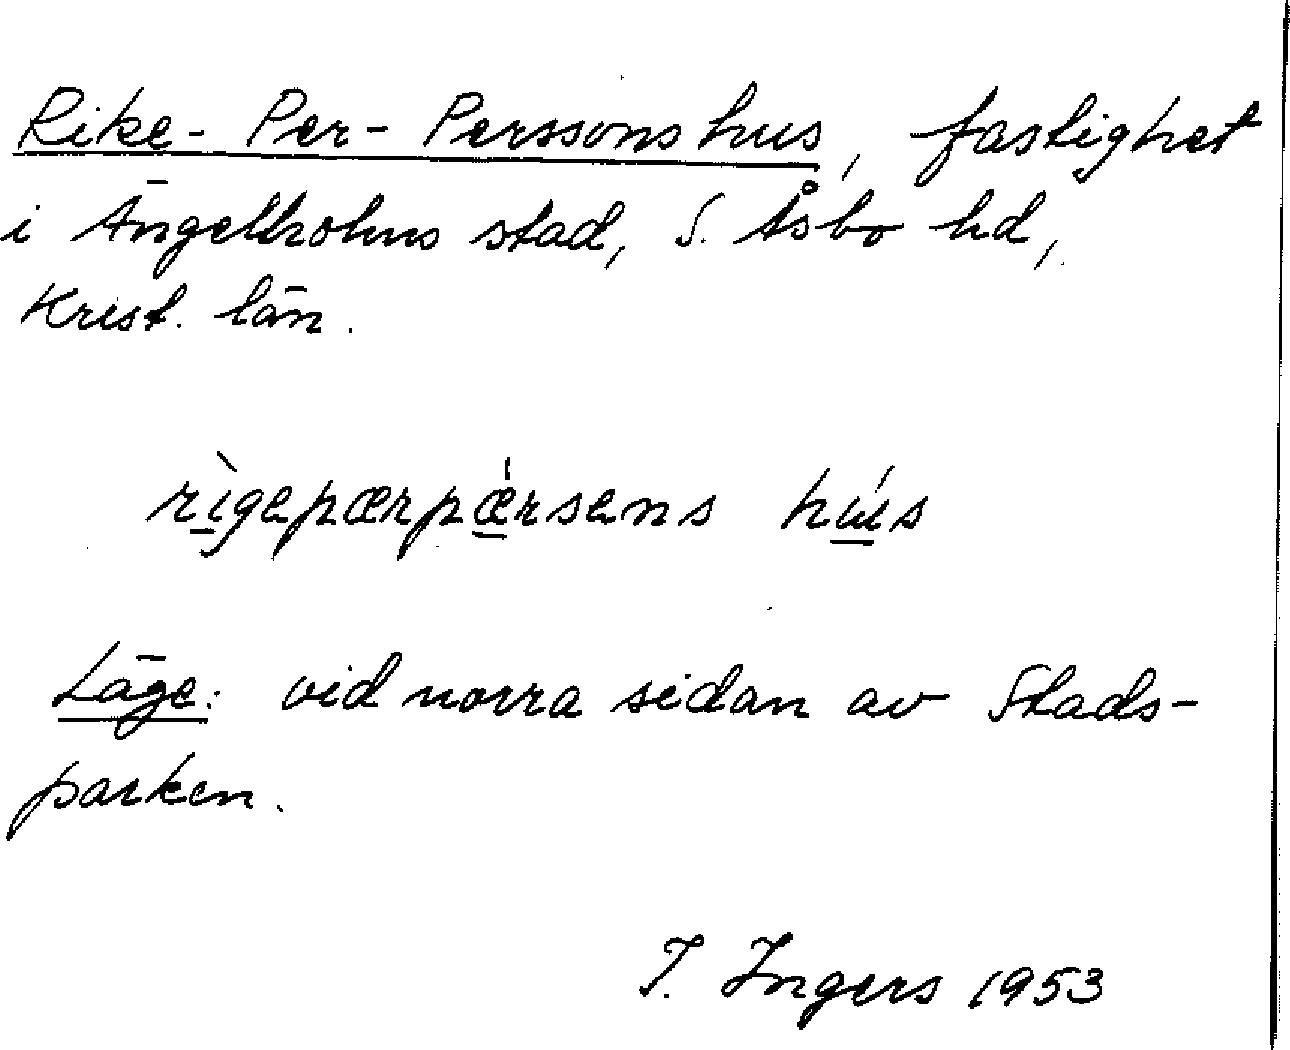 Rike-Per-Perssons hus, fastighet
i Ängelholms stad, S. Åsbo hd,
Krist. län.
rìgepærpǽrsens hús
Läge: vid norra sidan av Stads-
parken.
I. Ingers 1953